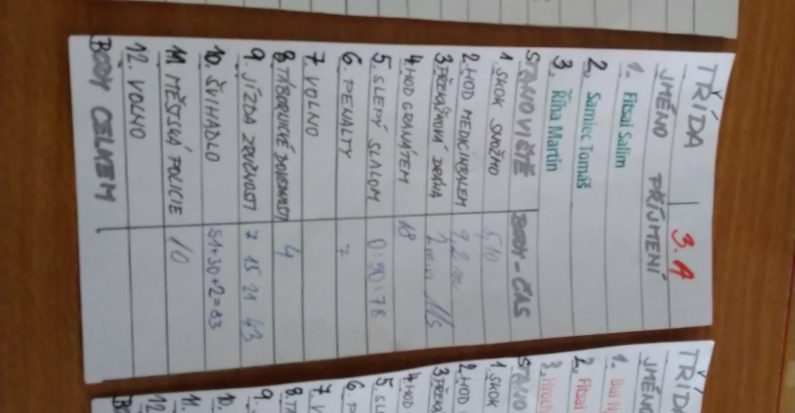 TŘÍDA 3.A
JMÉNO PŘÍJMENÍ
1. Fitsai Salim
2. Samiec Tomáš
3. Říha Martin
STANOVIŠTĚ BODY-ČAS
1. SKOK SNOŽMO 510
2. HOD MEDICINBALEM 9,2
3. PŘEKÁŽKOVÁ DRÁHA 2 min
4. HOD GRANÁTEM 18
5. SLEPÝ SLALOM 0:90:78
6. PENALTY 7
7. VOLNO
8. TÁBORNICKÉ DOVEDNOSTI 4
9. JÍZDA ZRUČNOSTI 7 15 21 43
10. ŠVIHADLO 51+30+2=83
11. MĚSTSKÁ POLICIE 10
12. VOLNO
BODY CELKEM
TŘÍD
JMÉN
1.
2. Fitsai
3. Hroch
STANO
1. SKOK
2. HOD
3. PŘEK
4. HOD
5. SL
6. P
7. V
8. T
9.
10.
11.
12
B